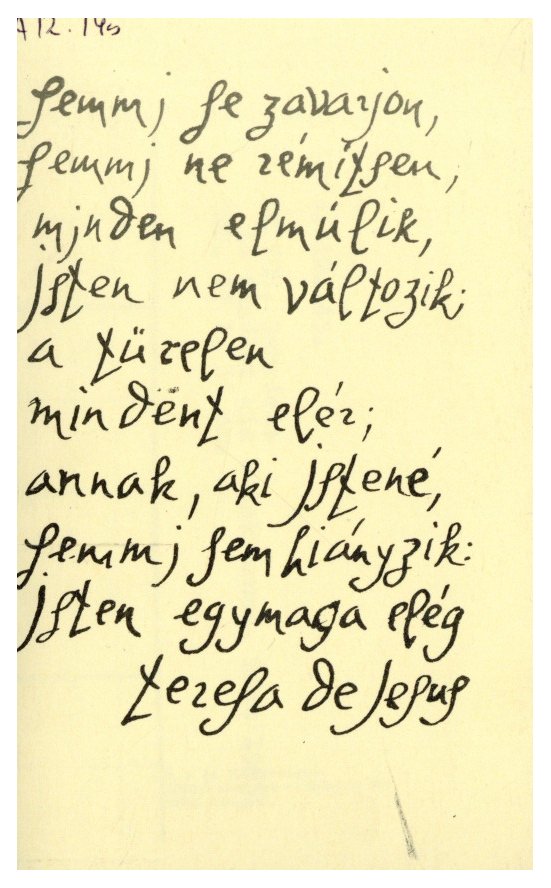 A12.195
semmj se zavarjon,
semmj ne rémítsen,
mjnden elmúlik,
jsten nem változik;
a türelem
mindënt elér;
annak, aki jstené,
semmj sem hiányzik:
jsten egymaga elég
teresa de jesus